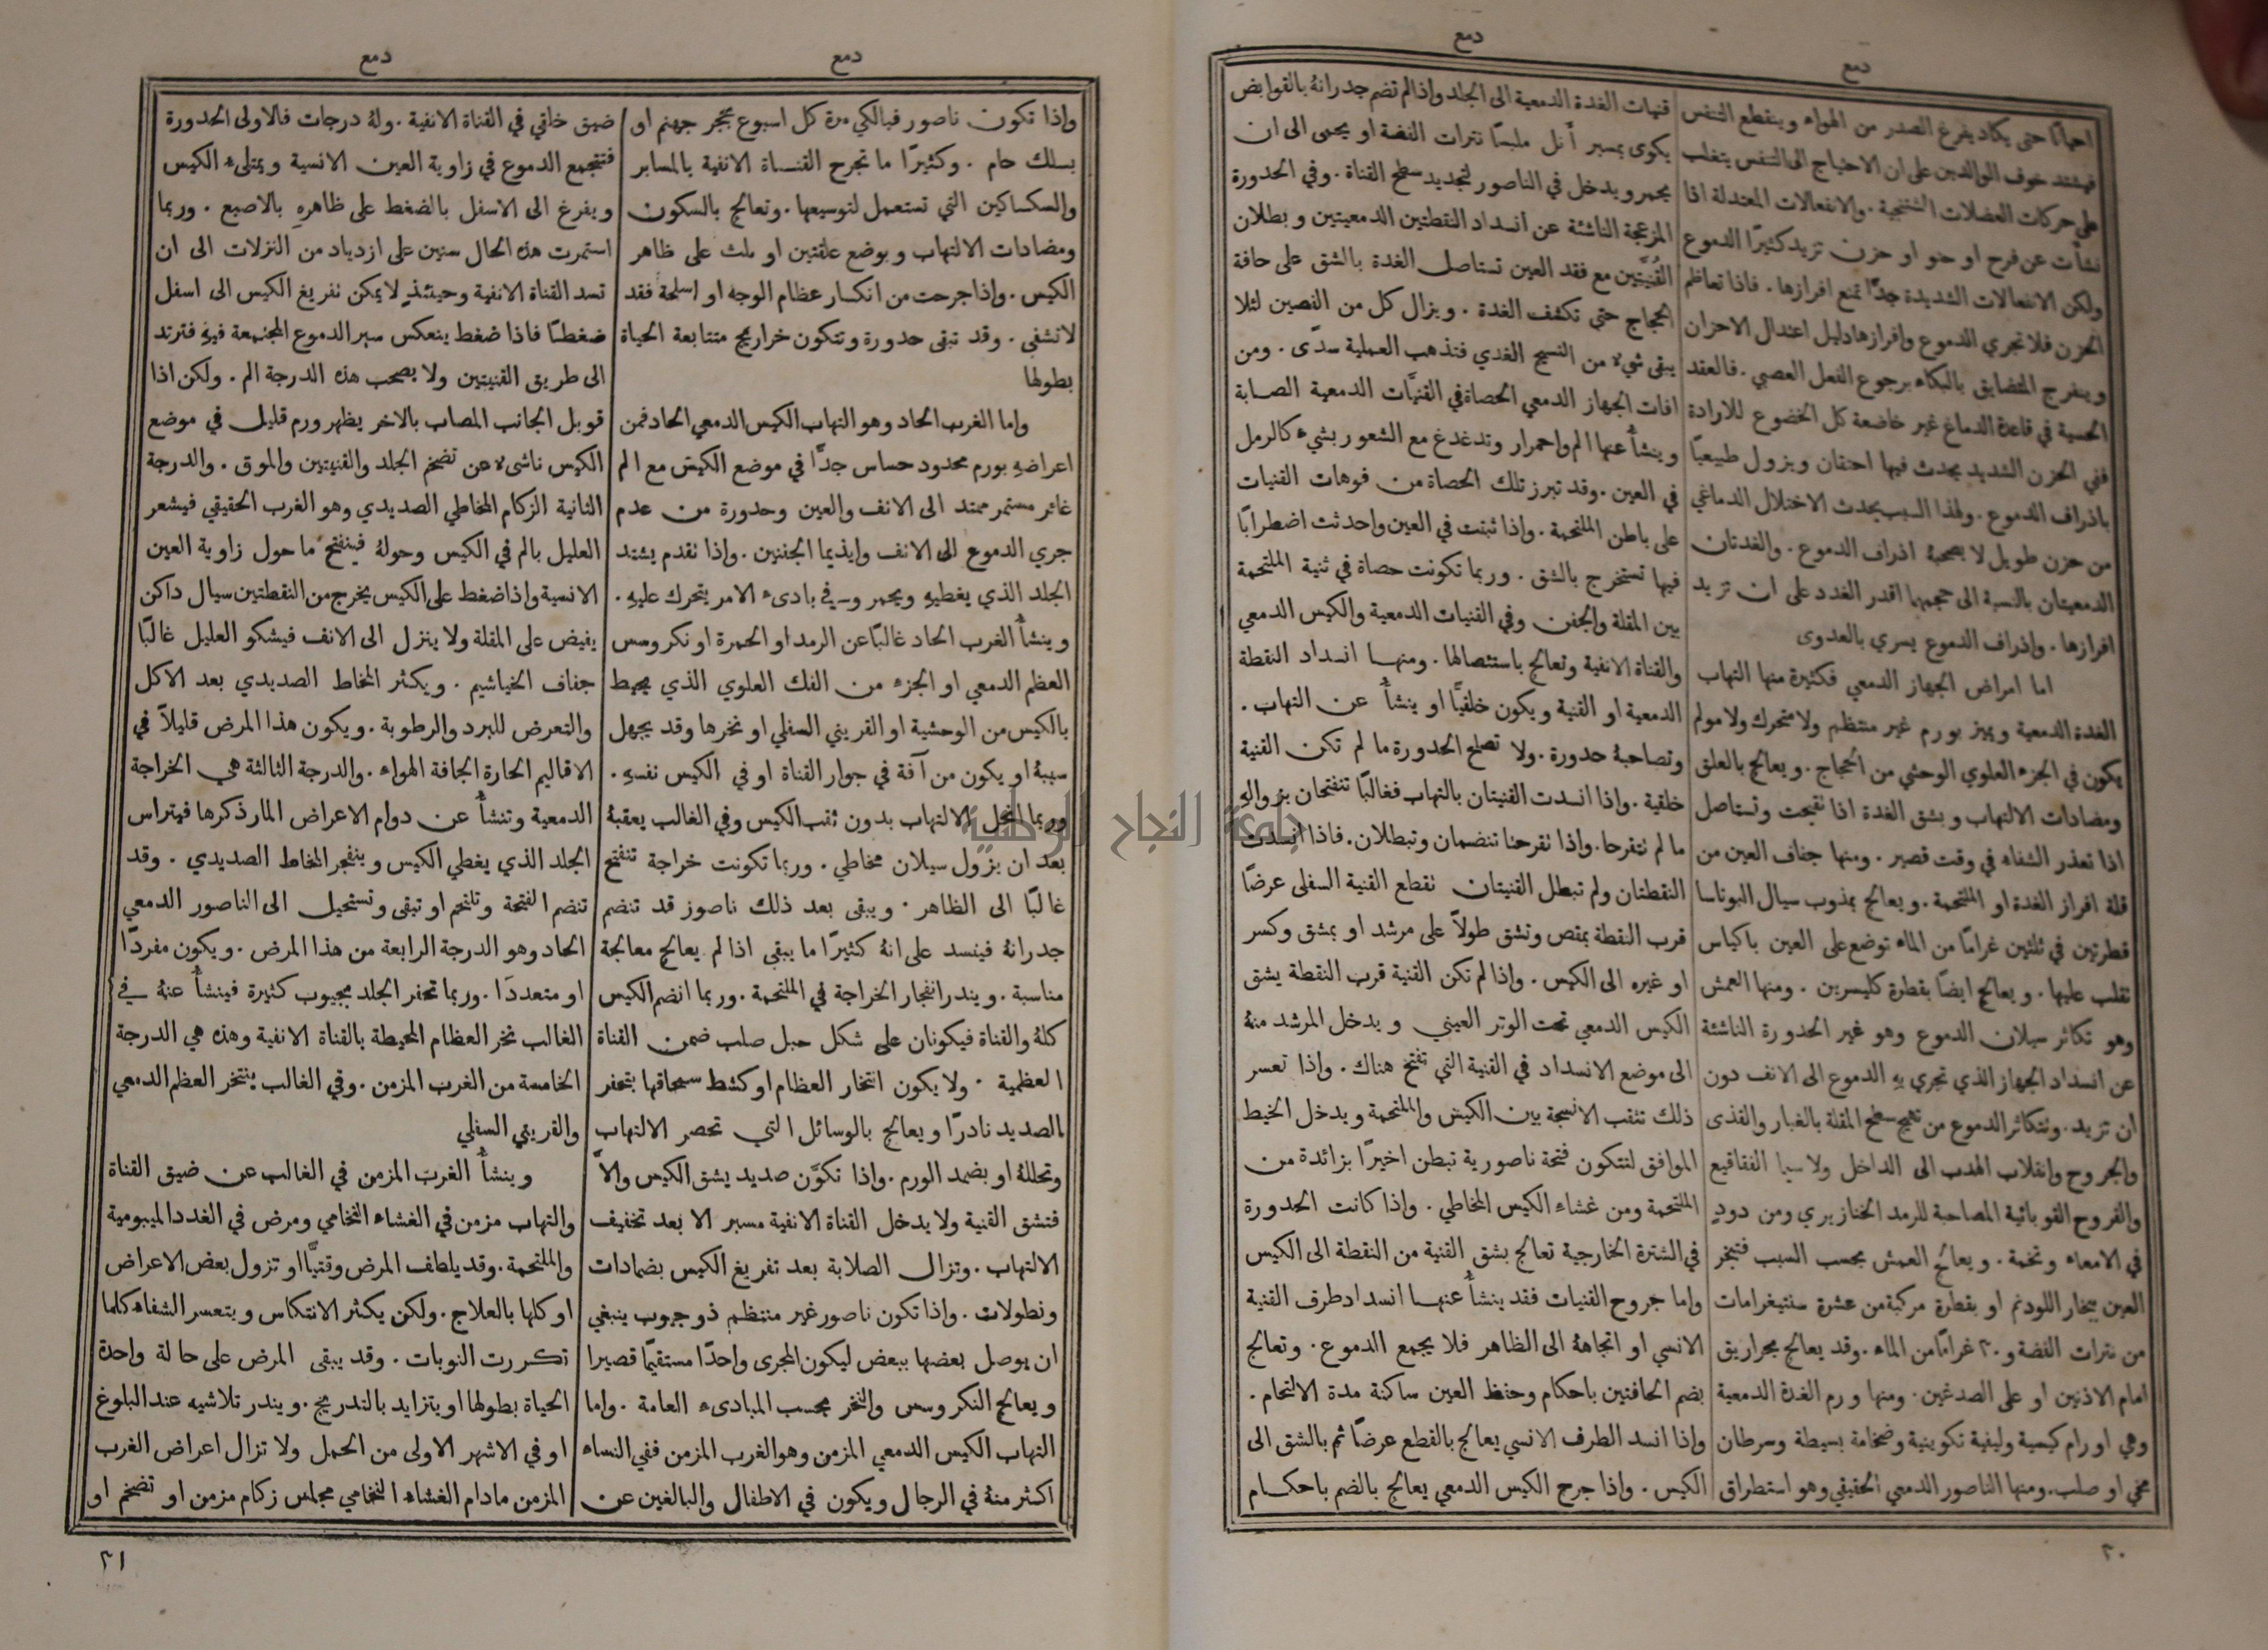 دمع
دمع
احيانًا حتى يكاد يفرغ الصدر من الهواء وينقطع التنفس
فيشتد خوف الوالدين على ان الاحتياج الى التنفس يتغلب
على حركات العضلات التشنجية. والانفعالات المعتدلة اذا
نشأت عن فرح او حنو او حزن تزيد كثيرًا الدموع
ولكن الانفعالات الشديدة جدًّا تمنع افرازها. فاذا تعاظم
الحزن فلا تجري الدموع وافرازها دليل اعتدال الاحزان
وينفرج المتضايق بالبكاء برجوع الفعل العصبي. فالعقد
الحسية في قاعدة الدماغ غير خاضعة كل الخضوع للارادة
ففي الحزن الشديد يحدث فيها احتقان ويزول طبيعيًّا
باذراف الدموع. ولهذا السبب يحدث الاختلال الدماغي
من حزن طويل لا يصحبهُ اذراف الدموع. والغدتان
الدمعيتان بالنسبة الى حجمهما اقدر الغدد على ان تزيد
افرازها. واذراف الدموع يسري بالعدوى
اما امراض الجهاز الدمعي فكثيرة منها التهاب
الغدة الدمعية ويميز بورم غير منتظم ولا متحرك ولا مولم
يكون في الجزء العلوي الوحشي من الحجاج. ويعالج بالعلق
ومضادات الالتهاب وبشق الغدة اذا تقيحت وتستاصل
اذا تعذر الشفاء في وقت قصير. ومنها جفاف العين من
قلة افراز الغدة او الملتحمة. ويعالج بمذوب سيال البوتاسا
قطرتين في ثلثين غرامًا من الماء توضع على العين باكياس
تقلب عليها. ويعالج ايضًا بقطرة كليسرين. ومنها العمش
وهو تكاثر سيلان الدموع وهو غير الحدورة الناشئة
عن انسداد الجهاز الذي تجري بهِ الدموع الى الانف دون
ان تزيد. وتتكاثر الدموع من تهيج سطح المقلة بالغبار والقذى
والجروح وانقلاب الهدب الى الداخل ولا سيما الفقاقيع
والقروح القوبائية المصاحبة للرمد الخنازيري ومن دودٍ
في الامعاء وتخمة. ويعالج العمش بحسب السبب فتبخر
العين ببخار اللودنم او بقطرة مركبة من عشرة سنتيغرامات
من نترات الفضة و٣٠ غرامًا من الماء. وقد يعالج بحراريق
امام الاذنين او على الصدغين. ومنها ورم الغدة الدمعية
وهي اورام كيسية وليفية تكوينية وضخامة بسيطة وسرطان
مخي او صلب. ومنها الناصور الدمعي الحقيقي وهو استطراق
قنيات الغدة الدمعية الى الجلد واذا لم تضم جدرانهُ بالقوابض
يكوى بمسبر أنل ملبسًا نترات الفضة او يحمى الى ان
يحمر ويدخل في الناصور لتجديد سطح القناة. وفي الحدورة
المزعجة الناشئة عن انسداد النقطتين الدمعيتين وبطلان
القُنيَّتين مع فقد العين تستاصل الغدة بالشق على حافة
الحجاج حتى تكشف الغدة. ويزال كل من الفصين لئلا
يبقى شيء من النسيج الغدي فتذهب العملية سدًى. ومن
افات الجهاز الدمعي الحصاة في القنيَّات الدمعية الصابة
وينشأُ عنها الم واحمرار وتدغدغ مع الشعور بشيء كالرمل
في العين. وقد تبرز تلك الحصاة من فوهات القنيات
على باطن الملتحمة. واذا ثبتت في العين واحدثت اضطرابًا
فيها تستخرج بالشق. وربما تكونت حصاة في ثنية الملتحمة
بين المقلة والجفن وفي القنيات الدمعية والكيس الدمعي
والقناة الانفية وتعالج باستئصالها. ومنها انسداد النقطة
الدمعية او القنية ويكون خلقيًّا او ينشأُ عن التهاب.
وتصاحبهُ حدورة. ولا تصلح الحدورة ما لم تكن القنية
خلقية. واذا انسدت القنيتان بالتهاب فغالبًا تنفتحان بزوالهِ
ما لم تتقرحا. واذا تقرحتا تنضمان وتبطلان. فاذا انسدت
النقطتان ولم تبطل القنيتان تقطع القنية السفلى عرضًا
قرب النقطة بمقص وتشق طولًا على مرشد او بمشق وكسر
او غيره الى الكيس. واذا لم تكن القنية قرب النقطة يشق
الكيس الدمعي تحت الوتر العيني ويدخل المرشد منهُ
الى موضع الانسداد في القنية التي تفتح هناك. واذا تعسر
ذلك تثقب الانسجة بين الكيس والملتحمة ويدخل الخيط
الموافق لتتكون فتحة ناصورية تبطن اخيرًا بزائدة من
الملتحمة ومن غشاء الكيس المخاطي. واذا كانت الحدورة
في الشترة الخارجية تعالج بشق القنية من النقطة الى الكيس
واما جروح القنيات فقد ينشأُ عنها انسداد طرف القنية
الانسي او اتجاههُ الى الظاهر فلا يجمع الدموع. وتعالج
بضم الحافتين باحكام وحفظ العين ساكنة مدة الالتحام.
واذا انسد الطرف الانسي يعالج بالقطع عرضًا ثم بالشق الى
الكيس. واذا جرح الكيس الدمعي يعالج بالضم باحكام
٢٠
دمع
دمع
واذا تكون ناصور فبالكي مرة كل اسبوع بحجر جهنم او
بسلك حام. وكثيرًا ما تجرح القناة الانفية بالمسابر
والسكساكين التي تستعمل لتوسيعها. وتعالج بالسكون
ومضادات الالتهاب وبوضع علقتين او ثلث على ظاهر
الكيس. واذا جرحت من انكسار عظام الوجه او اسلحة فقد
لا تشفى. وقد تبقى حدورة وتتكون خراريج متتابعة الحياة
بطولها
واما الغرب الحاد وهو التهاب الكيس الدمعي الحاد فمن
اعراضهِ بورم محدود حساس جدًّا في موضع الكيس مع الم
غائر مستمر ممتد الى الانف والعين وحدورة من عدم
جري الدموع الى الانف وايذيما الجفنين. واذا تقدم يشتد
الجلد الذي يغطيهِ ويحمر وفي بادىء الامر يتحرك عليهِ.
وينشأُ الغرب الحاد غالبًا عن الرمد او الحمرة او نكروسس
العظم الدمعي او الجزء من الفك العلوي الذي يحيط
بالكيس من الوحشية او القريني السفلي او نخرها وقد يجهل
سببهُ او يكون من آفة في جوار القناة او في الكيس نفسهِ.
وربما انحل الالتهاب بدون ثقب الكيس وفي الغالب يعقبهُ
بعد ان يزول سيلان مخاطي. وربما تكونت خراجة تنفتح
غالبًا الى الظاهر. ويبقى بعد ذلك ناصوز قد تنضم
جدرانهُ فينسد على انهُ كثيرًا ما يبقى اذا لم يعالج معالجة
مناسبة. ويندر انفجار الخراجة في الملتحمة. وربما انضم الكيس
كلهُ والقناة فيكونان على شكل حبل صلب ضمن القناة
العظمية. ولا يكون انتخار العظام او كشط سمحاقها بتحفر
الصديد نادرًا ويعالج بالوسائل التي تحصر الالتهاب
وتحللهُ او بضمد الورم. واذا تكوَّن صديد يشق الكيس والاَّ
فتشق القنية ولا يدخل القناة الانفية مسبر الا بعد تخفيف
الالتهاب. وتزال الصلابة بعد تفريغ الكيس بضمادات
ونطولات. واذا تكون ناصور غير منتظم ذو جيوب ينبغي
ان يوصل بعضها ببعض ليكون المجرى واحدًا مستقيمًا قصيرا
ويعالج النكروسس والنخر بحسب المبادىء العامة. واما
التهاب الكيس الدمعي المزمن وهو الغرب المزمن ففي النساء
اكثر منهُ في الرجال ويكون في الاطفال والبالغين عن
ضيق خلقي في القناة الانفية. ولهُ درجات فالاولى الحدورة
فتتجمع الدموع في زاوية العين الانسية ويمتلىء الكيس
ويفرغ الى الاسفل بالضغط على ظاهرهِ بالاصبع. وربما
استمرت هذه الحال سنين على ازدياد من النزلات الى ان
تسد القناة الانفية وحينئذٍ لا يمكن تفريغ الكيس الى اسفل
ضغطًا فاذا ضغط ينعكس سير الدموع المجتمعة فيهِ فترتد
الى طريق القنيتين ولا يصحب هذه الدرجة الم. ولكن اذا
قوبل الجانب المصاب بالاخر يظهر ورم قليل في موضع
الكيس ناشىء عن تضخم الجلد والقنيتين والموق. والدرجة
الثانية الزكام المخاطي الصديدي وهو الغرب الحقيقي فيشعر
العليل بالم في الكيس وحولهُ فينتفخ ما حول زاوية العين
الانسية واذا ضغط على الكيس يخرج من النقطتين سيال داكن
يفيض على المقلة ولا ينزل الى الانف فيشكو العليل غالبًا
جفاف الخياشيم. ويكثر المخاط الصديدي بعد الاكل
والتعرض للبرد والرطوبة. ويكون هذا المرض قليلًا في
الاقاليم الحارة الجافة الهواء. والدرجة الثالثة هي الخراجة
الدمعية وتنشأُ عن دوام الاعراض المار ذكرها فيتراس
الجلد الذي يغطي الكيس وينفجر المخاط الصديدي. وقد
تنضم الفتحة وتلتحم او تبقى وتستحيل الى الناصور الدمعي
الحاد وهو الدرجة الرابعة من هذا المرض. ويكون مفردًا
او متعددًا. وربما تحفر الجلد بجيوب كثيرة فينشأُ عنهُ في
الغالب نخر العظام المحيطة بالقناة الانفية وهذه هي الدرجة
الخامسة من الغرب المزمن. وفي الغالب ينتخر العظم الدمعي
والقريني السفلي
وينشأُ الغرب المزمن في الغالب عن ضيق القناة
والتهاب مزمن في الغشاء النخامي ومرض في الغدد الميبومية
والملتحمة. وقد يلطف المرض وقتيًّا او تزول بعض الاعراض
او كلها بالعلاج. ولكن يكثر الانتكاس ويتعسر الشفاء كلما
تكررت النوبات. وقد يبقى المرض على حالة واحدة
الحياة بطولها او يتزايد بالتدريج. ويندر تلاشيه عند البلوغ
او في الاشهر الاولى من الحمل ولا تزال اعراض الغرب
المزمن ما دام الغشاء النخامي مجلس زكام مزمن او تضخم او
٢١
جامعة النجاح الوطنية